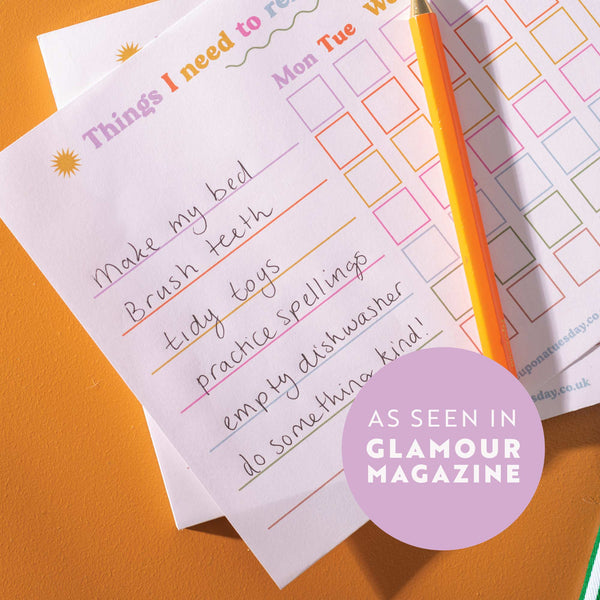 Things I need to re
Mon Tue We
make my bed
Brush teeth
tidy toys
practice spellings
empty dishwasher
do something kind!
uponatuesday.co
sday.co.uk
AS SEEN IN
GLAMOUR
MAGAZINE